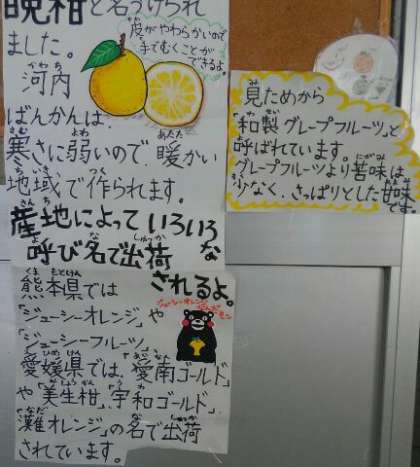 晩柑と名づけられ
ました。
皮がやわらかいので
手でむくことが
できるよ。
河内
ばんかんは、
寒さに弱いので、暖かい
地域で作られます。
産地によっていろいろな
呼び名で出荷
されるよ。
熊本県では
「ジューシーオレンジ」や
「ジューシーフルーツ」、
愛媛県では、「愛南ゴールド」
や「美生柑」、「宇和ゴールド」、
「灘オレンジ」の名で出荷
されています。
ジューシーオレンジ
見ためから
「和製グレープフルーツ」と
呼ばれています。
グレープフルーツより苦味は
少なく、さっぱりとした甘味